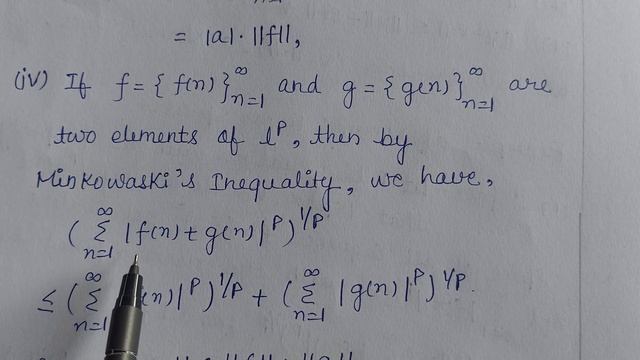 = |a|·||f||,
(iv) If f = { f(n) }_{n=1}^{∞} and g = { g(n) }_{n=1}^{∞} are
two elements of l^p, then by
Minkowaski's Inequality, we have,
( ∑_{n=1}^{∞} |f(n) + g(n)|^p )^{1/p}
≤ ( ∑_{n=1}^{∞} (n)|^p )^{1/p} + ( ∑_{n=1}^{∞} |g(n)|^p )^{1/p}.